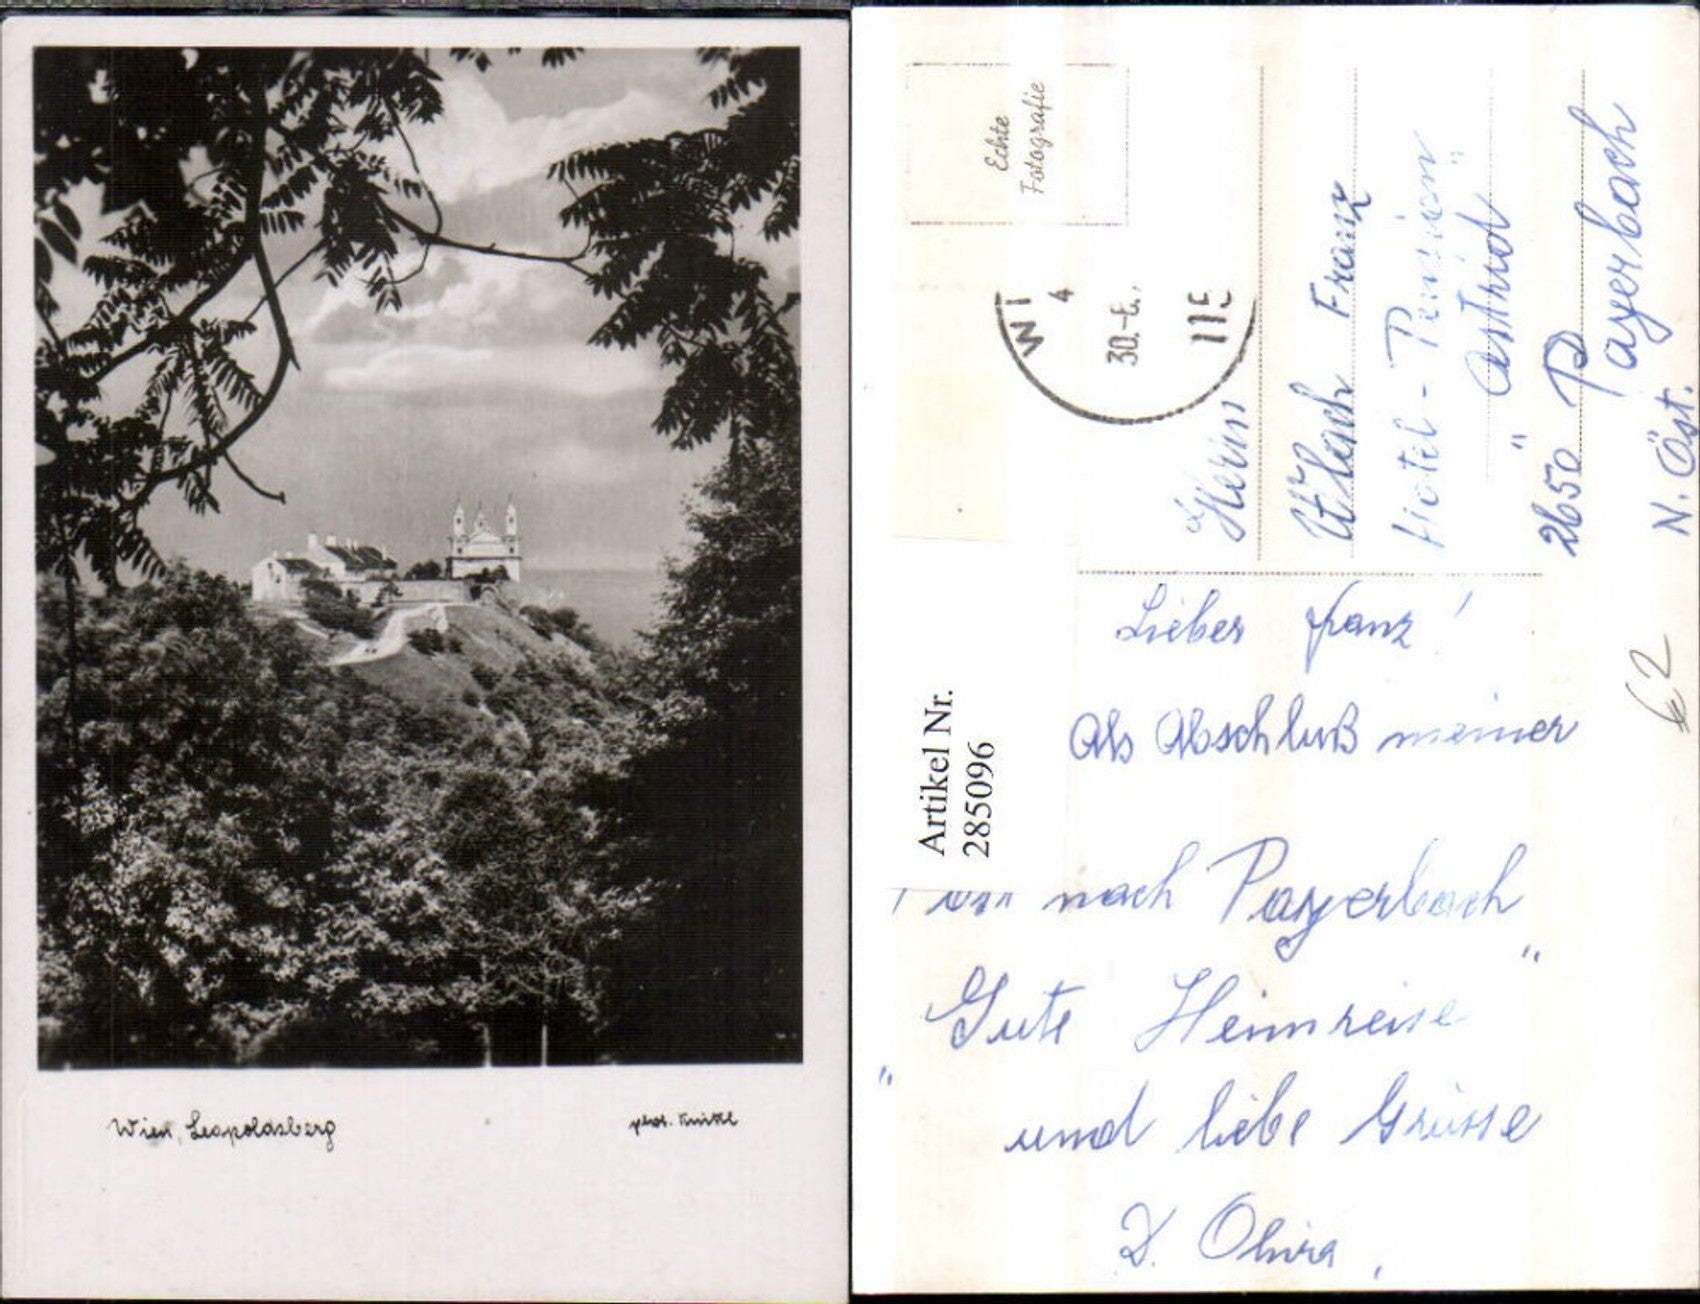 Wien, Leopoldsberg
phot. Knittl
Echte
Fotografie
WI
4
30.-6.
11E
Herrn
Franz
Hotel - Pension
"Astrid"
2650 Payerbach
N. Öst.
Artikel Nr.
2850 96
€2
Lieber Franz!
Als Abschluß meiner
nach Payerbach
"Gute Heimreise"
und liebe Grüsse